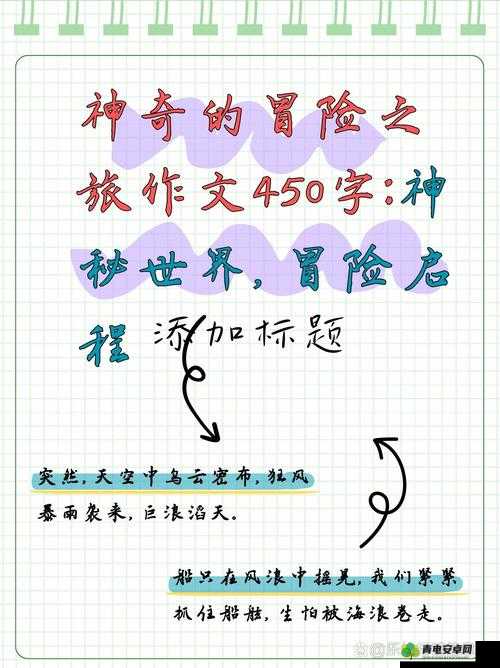 神奇的冒险之
旅作文450字:神
秘世界,冒险启
程 添加标题
突然,天空中乌云密布,狂风
暴雨袭来,巨浪滔天。
船只在风浪中摇晃,我们紧紧
抓住船舷,生怕被海浪卷走。
青电安卓网